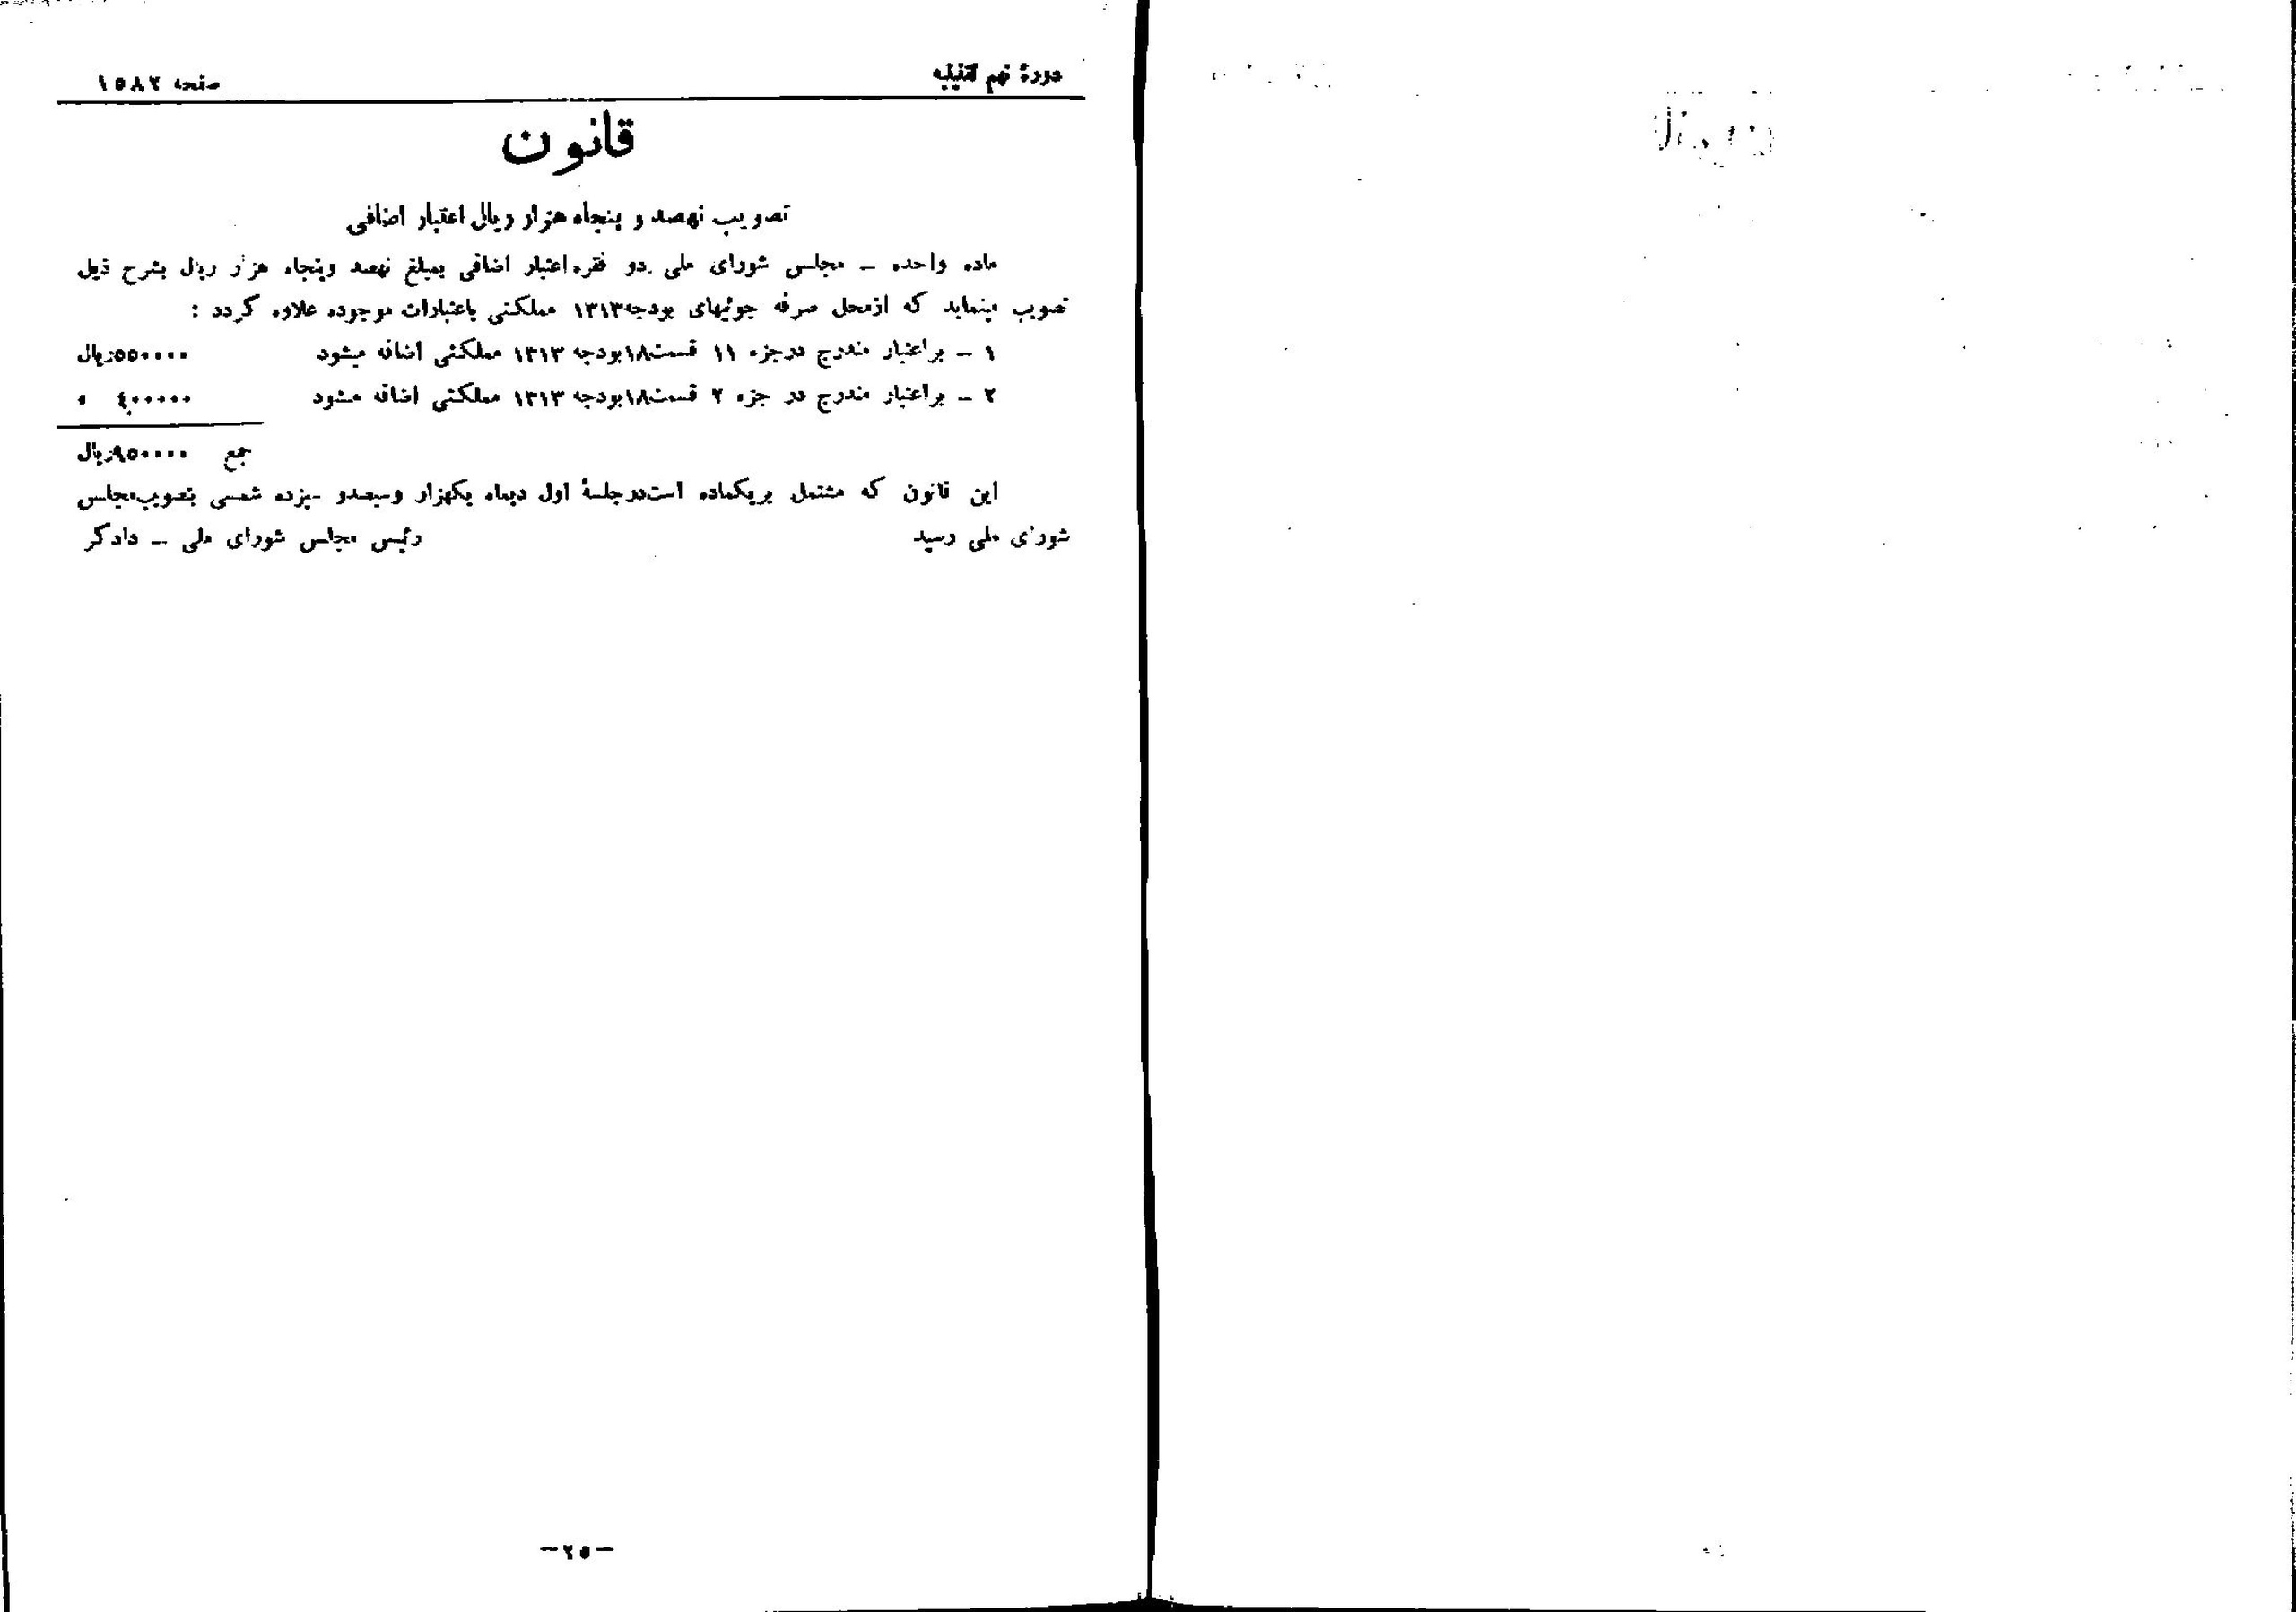 دورهٔ نهم تقنینیه
صفحه ۱۵۸۲
قانون
تصویب نهصد و پنجاه هزار ریال اعتبار اضافی
ماده واحده ـ مجلس شورای ملی دو فقره اعتبار اضافی بمبلغ نهصد و پنجاه هزار ریال بشرح ذیل
تصویب مینماید که از محل صرفه جوئیهای بودجه ۱۳۱۳ مملکتی باعتبارات موجوده علاوه گردد :
۱ ـ بر اعتبار مندرج در جزء ۱۱ قسمت ۱۸ بودجه ۱۳۱۳ مملکتی اضافه میشود ۵۵۰۰۰۰ ریال
۲ ـ بر اعتبار مندرج در جزء ۲ قسمت ۱۸ بودجه ۱۳۱۳ مملکتی اضافه میشود ۴۰۰۰۰۰ »
جمع ۹۵۰۰۰۰ ریال
این قانون که مشتمل بر یکماده است در جلسهٔ اول دیماه یکهزار و سیصد و سیزده شمسی بتصویب مجلس
شورای ملی رسید
رئیس مجلس شورای ملی ـ دادگر
ـ ۲۵ ـ